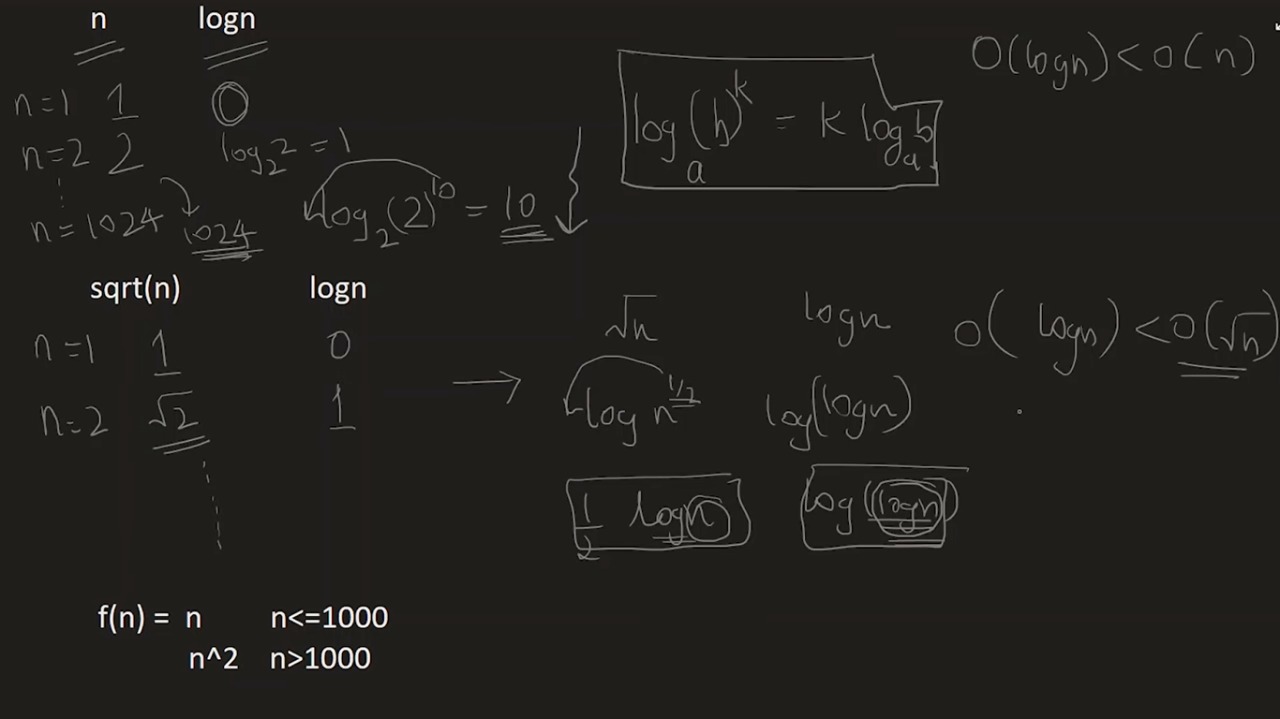 n logn
n=1 1 0
n=2 2 log₂2 = 1
n=1024 1024 log₂(2)^10 = 10
log_a(b)^k = k log_a b
O(logn) < O(n)
sqrt(n) logn
n=1 1 0
n=2 √2 1
√n logn O(logn) < O(√n)
log n^1/2 log(logn)
1/2 logn log(logn)
f(n) = n n<=1000
n^2 n>1000